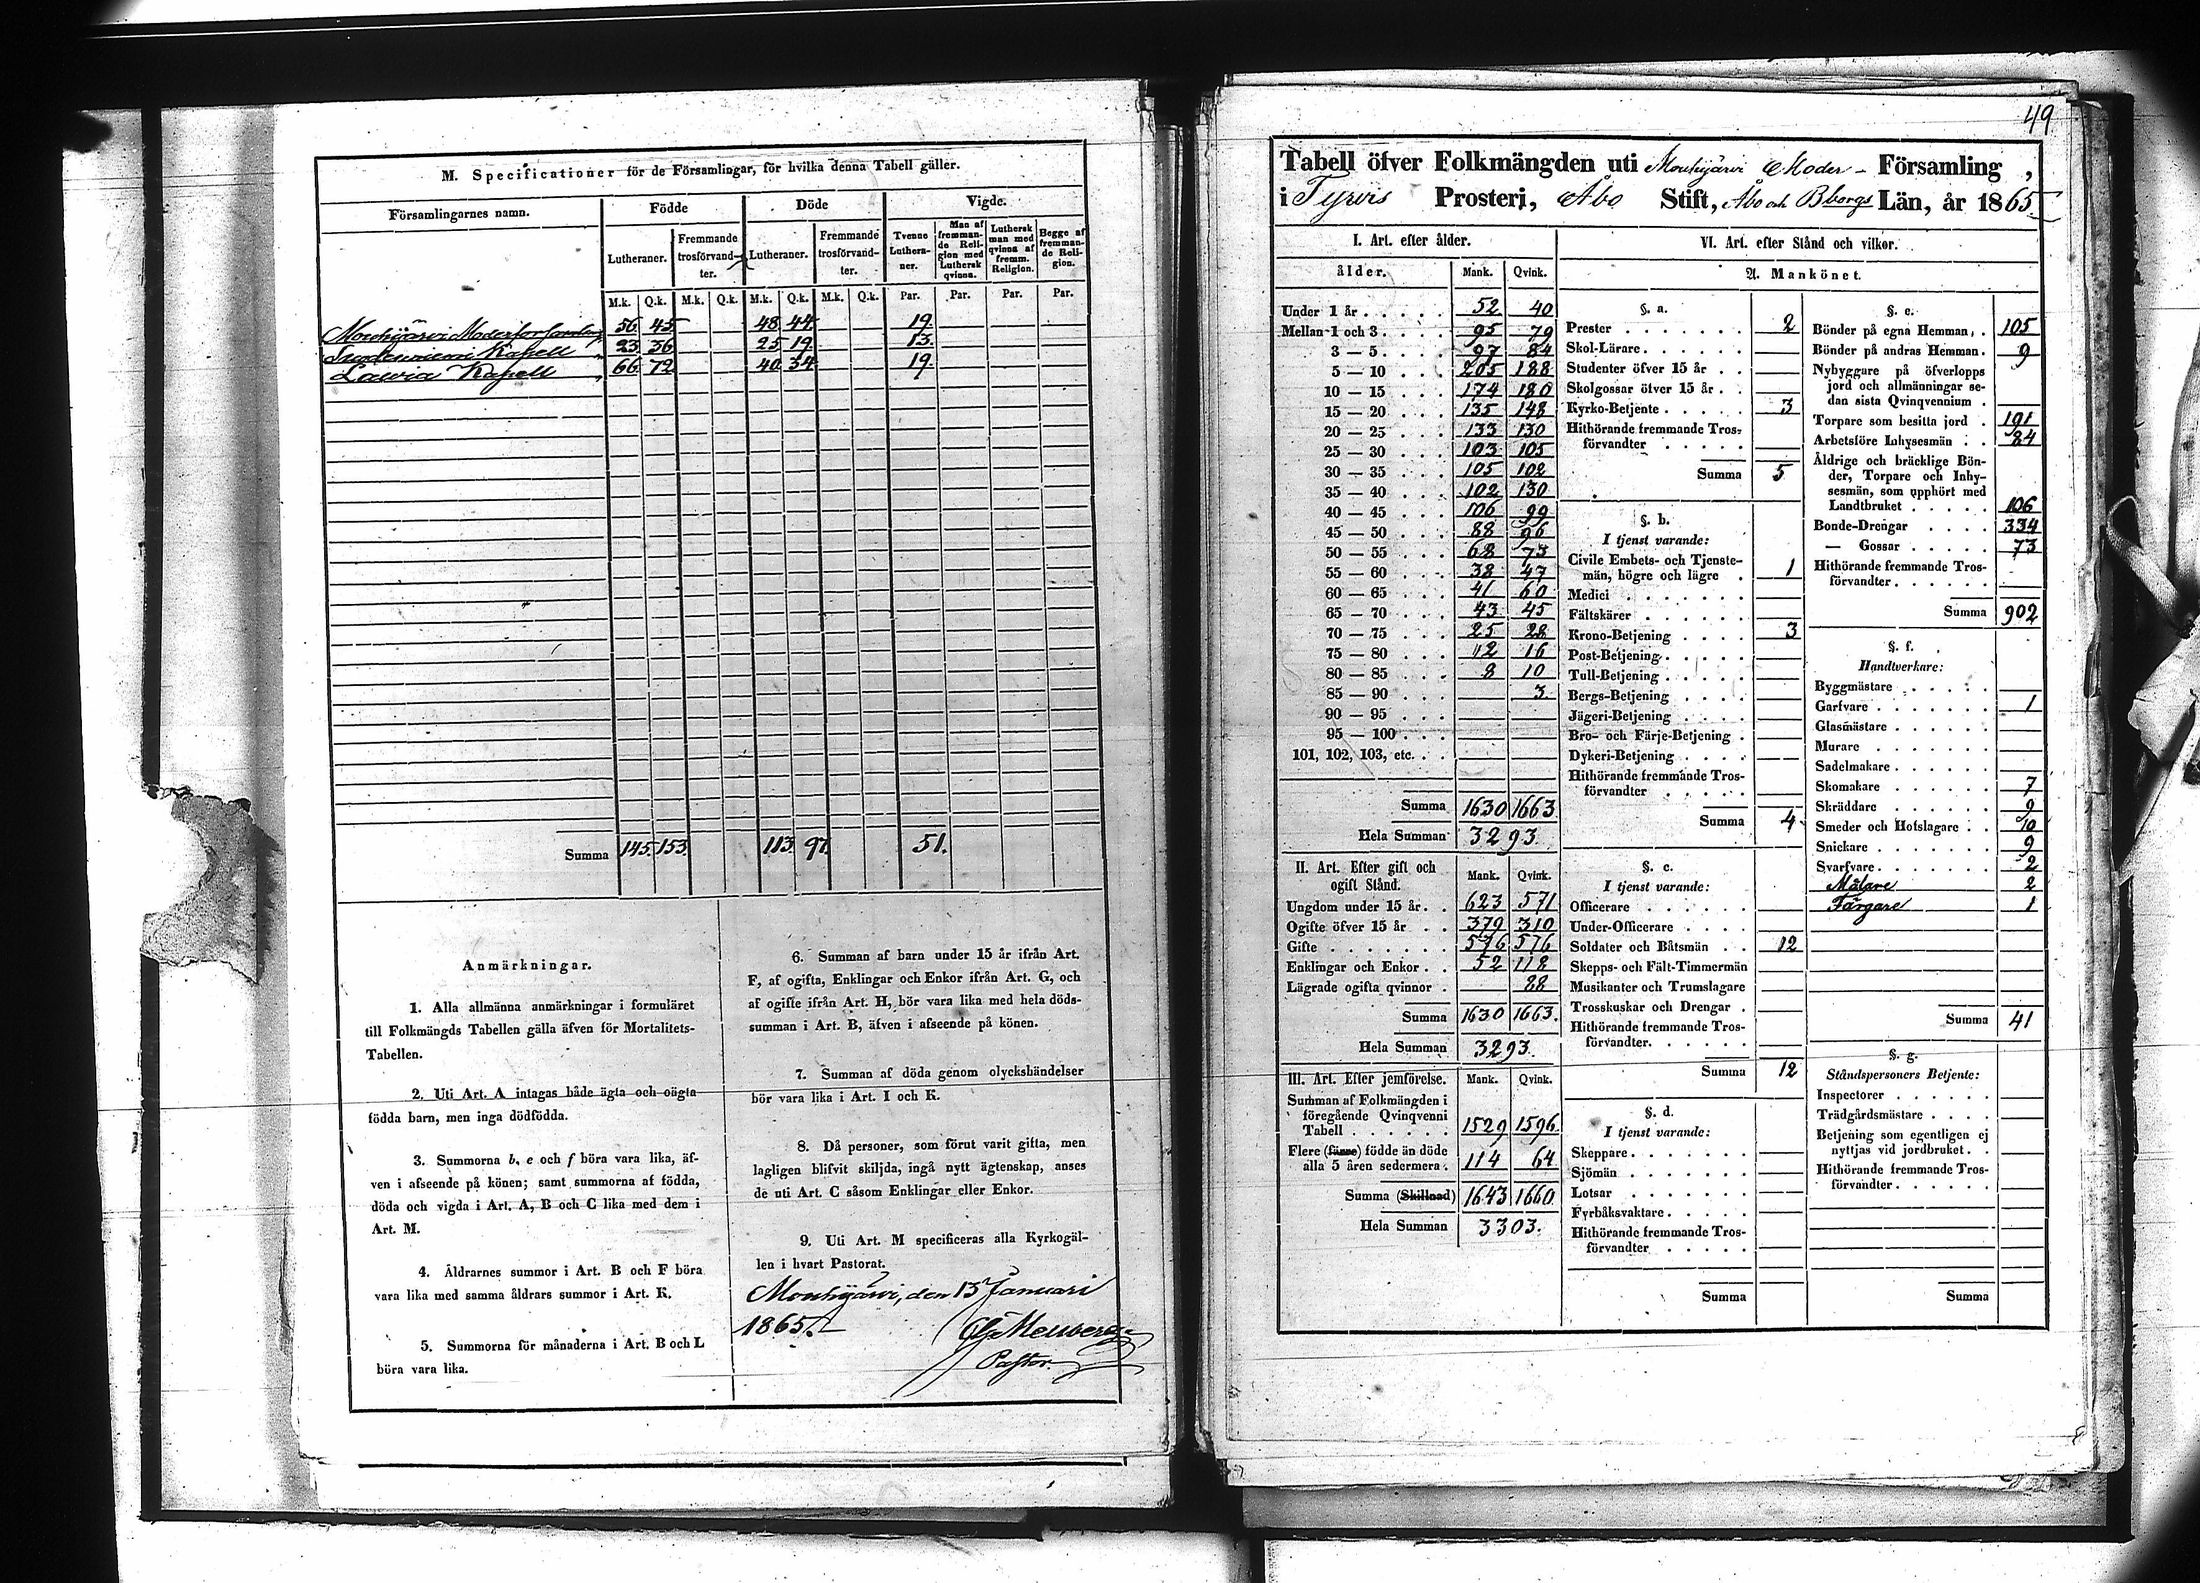 M. Specificationer för de Församlingar, för hvilka denna Tabell gäller.
Församlingarnes namn. Födde Döde Vigde.
Lutheraner. Fremmande trosförvandter. Lutheraner. Fremmande trosförvandter. Tvenne Lutheraner. Man af fremmande Religion med Luthersk qvinna. Luthersk man med qvinna af fremm. Religion. Begge af fremmande Religion.
M.k. Q.k. M.k. Q.k. M.k. Q.k. M.k. Q.k. Par. Par. Par. Par.
Mouhijärvi Moderförsamling 56 45 48 44 19.
Suodenniemi Kapell 23 36 25 19 13.
Lavia Kapell 66 72 40 34 19.
Summa 145 153 113 97 51.
Anmärkningar.
1. Alla allmänna anmärkningar i formuläret
till Folkmängds Tabellen gälla äfven för Mortalitets-
Tabellen.
2. Uti Art. A intagas både ägta och oägta
födda barn, men inga dödfödda.
3. Summorna b, e och f böra vara lika, äf-
ven i afseende på könen; samt summorna af födda,
döda och vigda i Art. A, B och C lika med dem i
Art. M.
4. Åldrarnes summor i Art. B och F böra
vara lika med samma åldrars summor i Art. K.
5. Summorna för månaderna i Art. B och L
böra vara lika.
6. Summan af barn under 15 år ifrån Art.
F, af ogifta, Enklingar och Enkor ifrån Art. G, och
af ogifte ifrån Art. H, bör vara lika med hela döds-
summan i Art. B, äfven i afseende på könen.
7. Summan af döda genom olyckshändelser
bör vara lika i Art. I och K.
8. Då personer, som förut varit gifta, men
lagligen blifvit skiljda, ingå nytt ägtenskap, anses
de uti Art. C såsom Enklingar eller Enkor.
9. Uti Art. M specificeras alla Kyrkogäl-
len i hvart Pastorat.
Mouhijärvi, den 13 Januari
1865.
Pastor.
49
Tabell öfver Folkmängden uti Mouhijärvi Moder- Församling,
i Tyrvis Prosteri, Åbo Stift, Åbo och Bborgs Län, år 1865
I. Art. efter ålder.
ålder. Mank. Qvink.
Under 1 år 52 40
Mellan 1 och 3 95 79
3 — 5 97 84
5 — 10 205 188
10 — 15 174 180
15 — 20 135 148
20 — 25 133 130
25 — 30 103 105
30 — 35 105 102
35 — 40 102 130
40 — 45 106 99
45 — 50 88 96
50 — 55 68 73
55 — 60 38 47
60 — 65 41 60
65 — 70 43 45
70 — 75 25 28
75 — 80 12 16
80 — 85 8 10
85 — 90 3
90 — 95
95 — 100
101, 102, 103, etc.
Summa 1630 1663
Hela Summan 3293
II. Art. Efter gift och
ogift Stånd. Mank. Qvink.
Ungdom under 15 år 623 571
Ogifte öfver 15 år 379 310
Gifte 576 576
Enklingar och Enkor 52 118
Lägrade ogifta qvinnor 88
Summa 1630 1663.
Hela Summan 3293.
III. Art. Efter jemförelse. Mank. Qvink.
Summan af Folkmängden i
föregående Qvinqvenni
Tabell 1529 1596.
Flere (färre) födde än döde
alla 5 åren sedermera 114 64
Summa (Skillnad) 1643 1660
Hela Summan 3303.
VI. Art. efter Stånd och vilkor.
A. Mankönet.
§. a.
Prester 2
Skol-Lärare
Studenter öfver 15 år
Skolgossar öfver 15 år
Kyrko-Betjente 3
Hithörande fremmande Tros-
förvandter
Summa 5
§. b.
I tjenst varande:
Civile Embets- och Tjenste-
män, högre och lägre 1
Medici
Fältskärer
Krono-Betjening 3
Post-Betjening
Tull-Betjening
Bergs-Betjening
Jägeri-Betjening
Bro- och Färje-Betjening
Dykeri-Betjening
Hithörande fremmande Tros-
förvandter
Summa 4
§. c.
I tjenst varande:
Officerare
Under-Officerare
Soldater och Båtsmän 12
Skepps- och Fält-Timmermän
Musikanter och Trumslagare
Trosskuskar och Drengar
Hithörande fremmande Tros-
förvandter.
Summa 12
§. d.
I tjenst varande:
Skeppare
Sjömän
Lotsar
Fyrbåksvaktare
Hithörande fremmande Tros-
förvandter
Summa
§. e.
Bönder på egna Hemman 105
Bönder på andras Hemman 9
Nybyggare på öfverlopps
jord och allmänningar se-
dan sista Qvinqvennium
Torpare som besitta jord 191
Arbetsföre Inhysesmän 84
Åldrige och bräcklige Bön-
der, Torpare och Inhy-
sesmän, som upphört med
Landtbruket 106
Bonde-Drengar 334
— Gossar 73
Hithörande fremmande Tros-
förvandter
Summa 902
§. f.
Handtverkare:
Byggmästare
Garfvare 1
Glasmästare
Murare
Sadelmakare
Skomakare 7
Skräddare 9
Smeder och Hofslagare 10
Snickare 9
Svarfvare 2
Målare 2
Färgare 1
Summa 41
§. g.
Ståndspersoners Betjente:
Inspectorer
Trädgårdsmästare
Betjening som egentligen ej
nyttjas vid jordbruket
Hithörande fremmande Tros-
förvandter
Summa